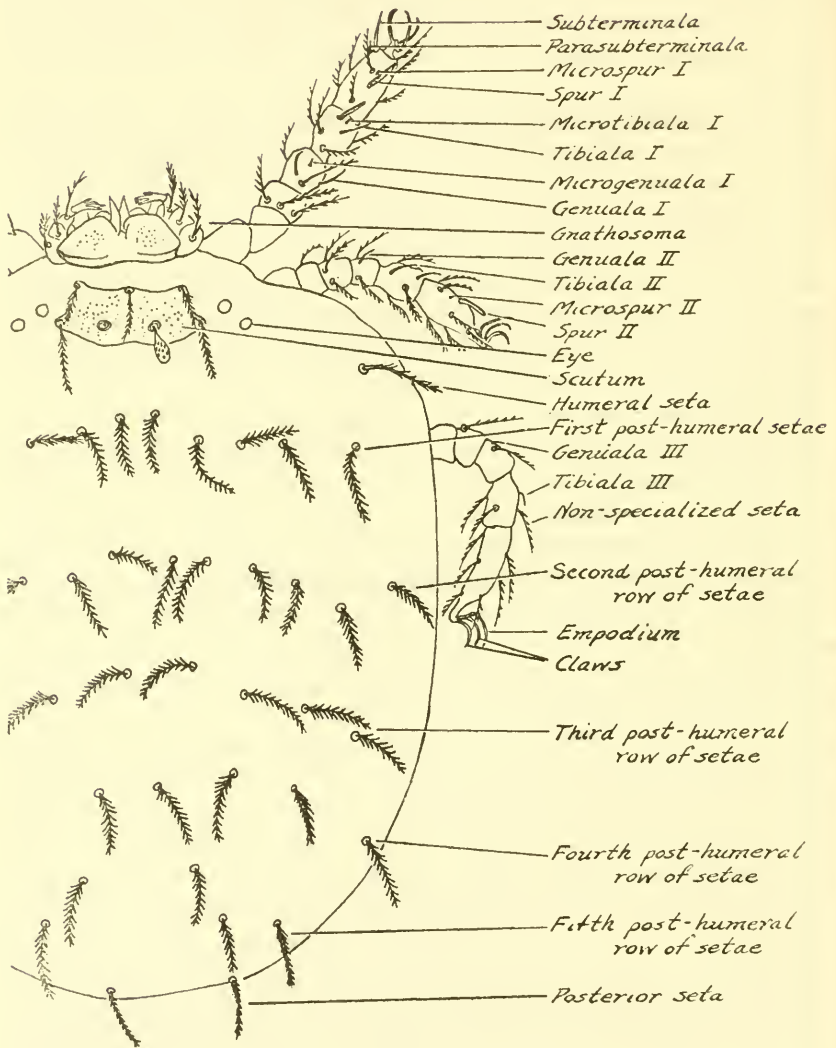 Subterminala
Parasubterminala
Microspur I
Spur I
Microtibiala I
Tibiala I
Microgenuala I
Genuala I
Gnathosoma
Genuala II
Tibiala II
Microspur II
Spur II
Eye
Scutum
Humeral seta
First post-humeral setae
Genuala III
Tibiala III
Non-specialized seta
Second post-humeral
row of setae
Empodium
Claws
Third post-humeral
row of setae
Fourth post-humeral
row of setae
Fifth post-humeral
row of setae
Posterior seta